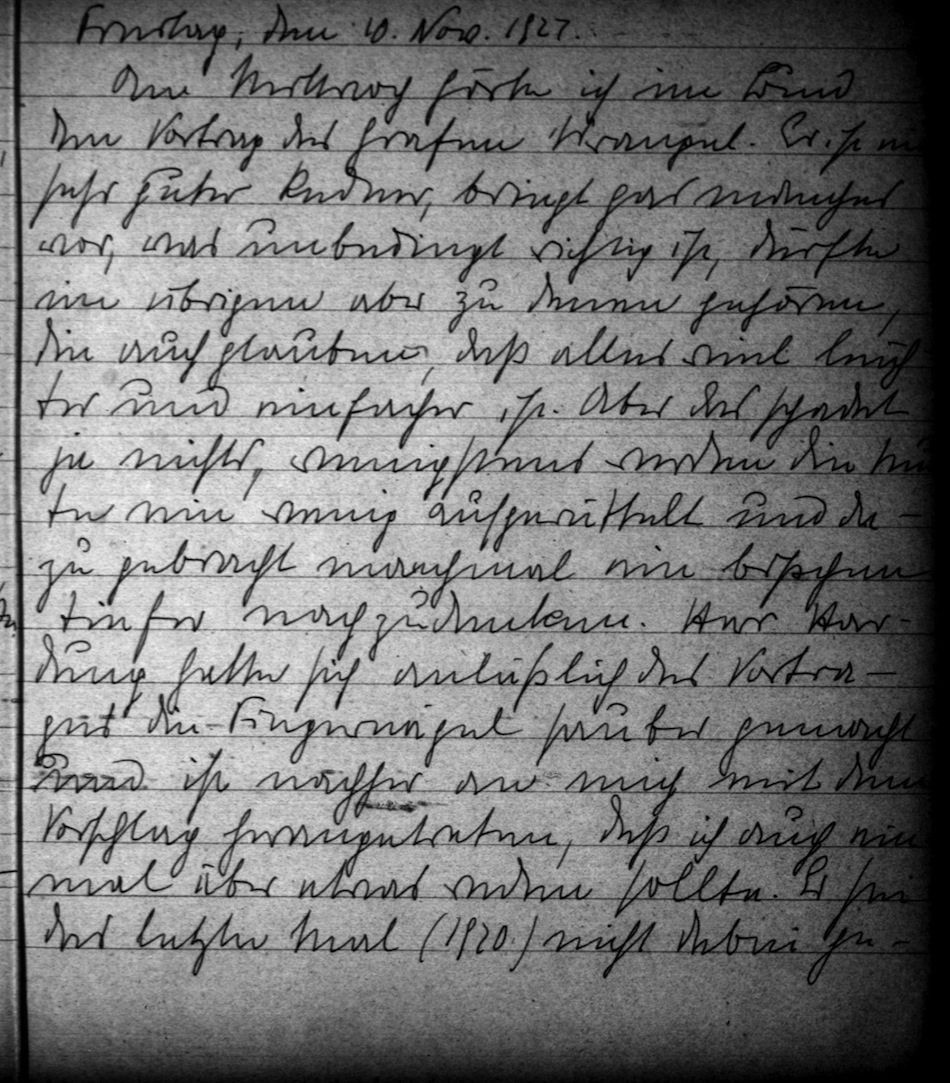 Freitag, den 10. Nov. 1927.
Am Mittwoch hörte ich im Bund
den Vortrag des Grafen Wrangel. Er ist ein
sehr guter Redner, bringt gar manches
vor, was unbedingt richtig ist, dürfte
im übrigen aber zu denen gehören,
die auch glauben, daß alles viel leich
ter und einfacher ist. Aber das schadet
ja nichts, wenigstens werden die Leu
te ein wenig aufgerüttelt und da-
zu gebracht manchmal ein bißchen
tiefer nachzudenken. Herr Har-
dung hatte sich anläßlich des Vortra-
ges die Fingernägel sauber gemacht
und ist nachher an mich mit dem
Vorschlag herangetreten, daß ich auch ein
mal über etwas reden sollte. Er sei
das letzte Mal (1920.) nicht dabei ge-